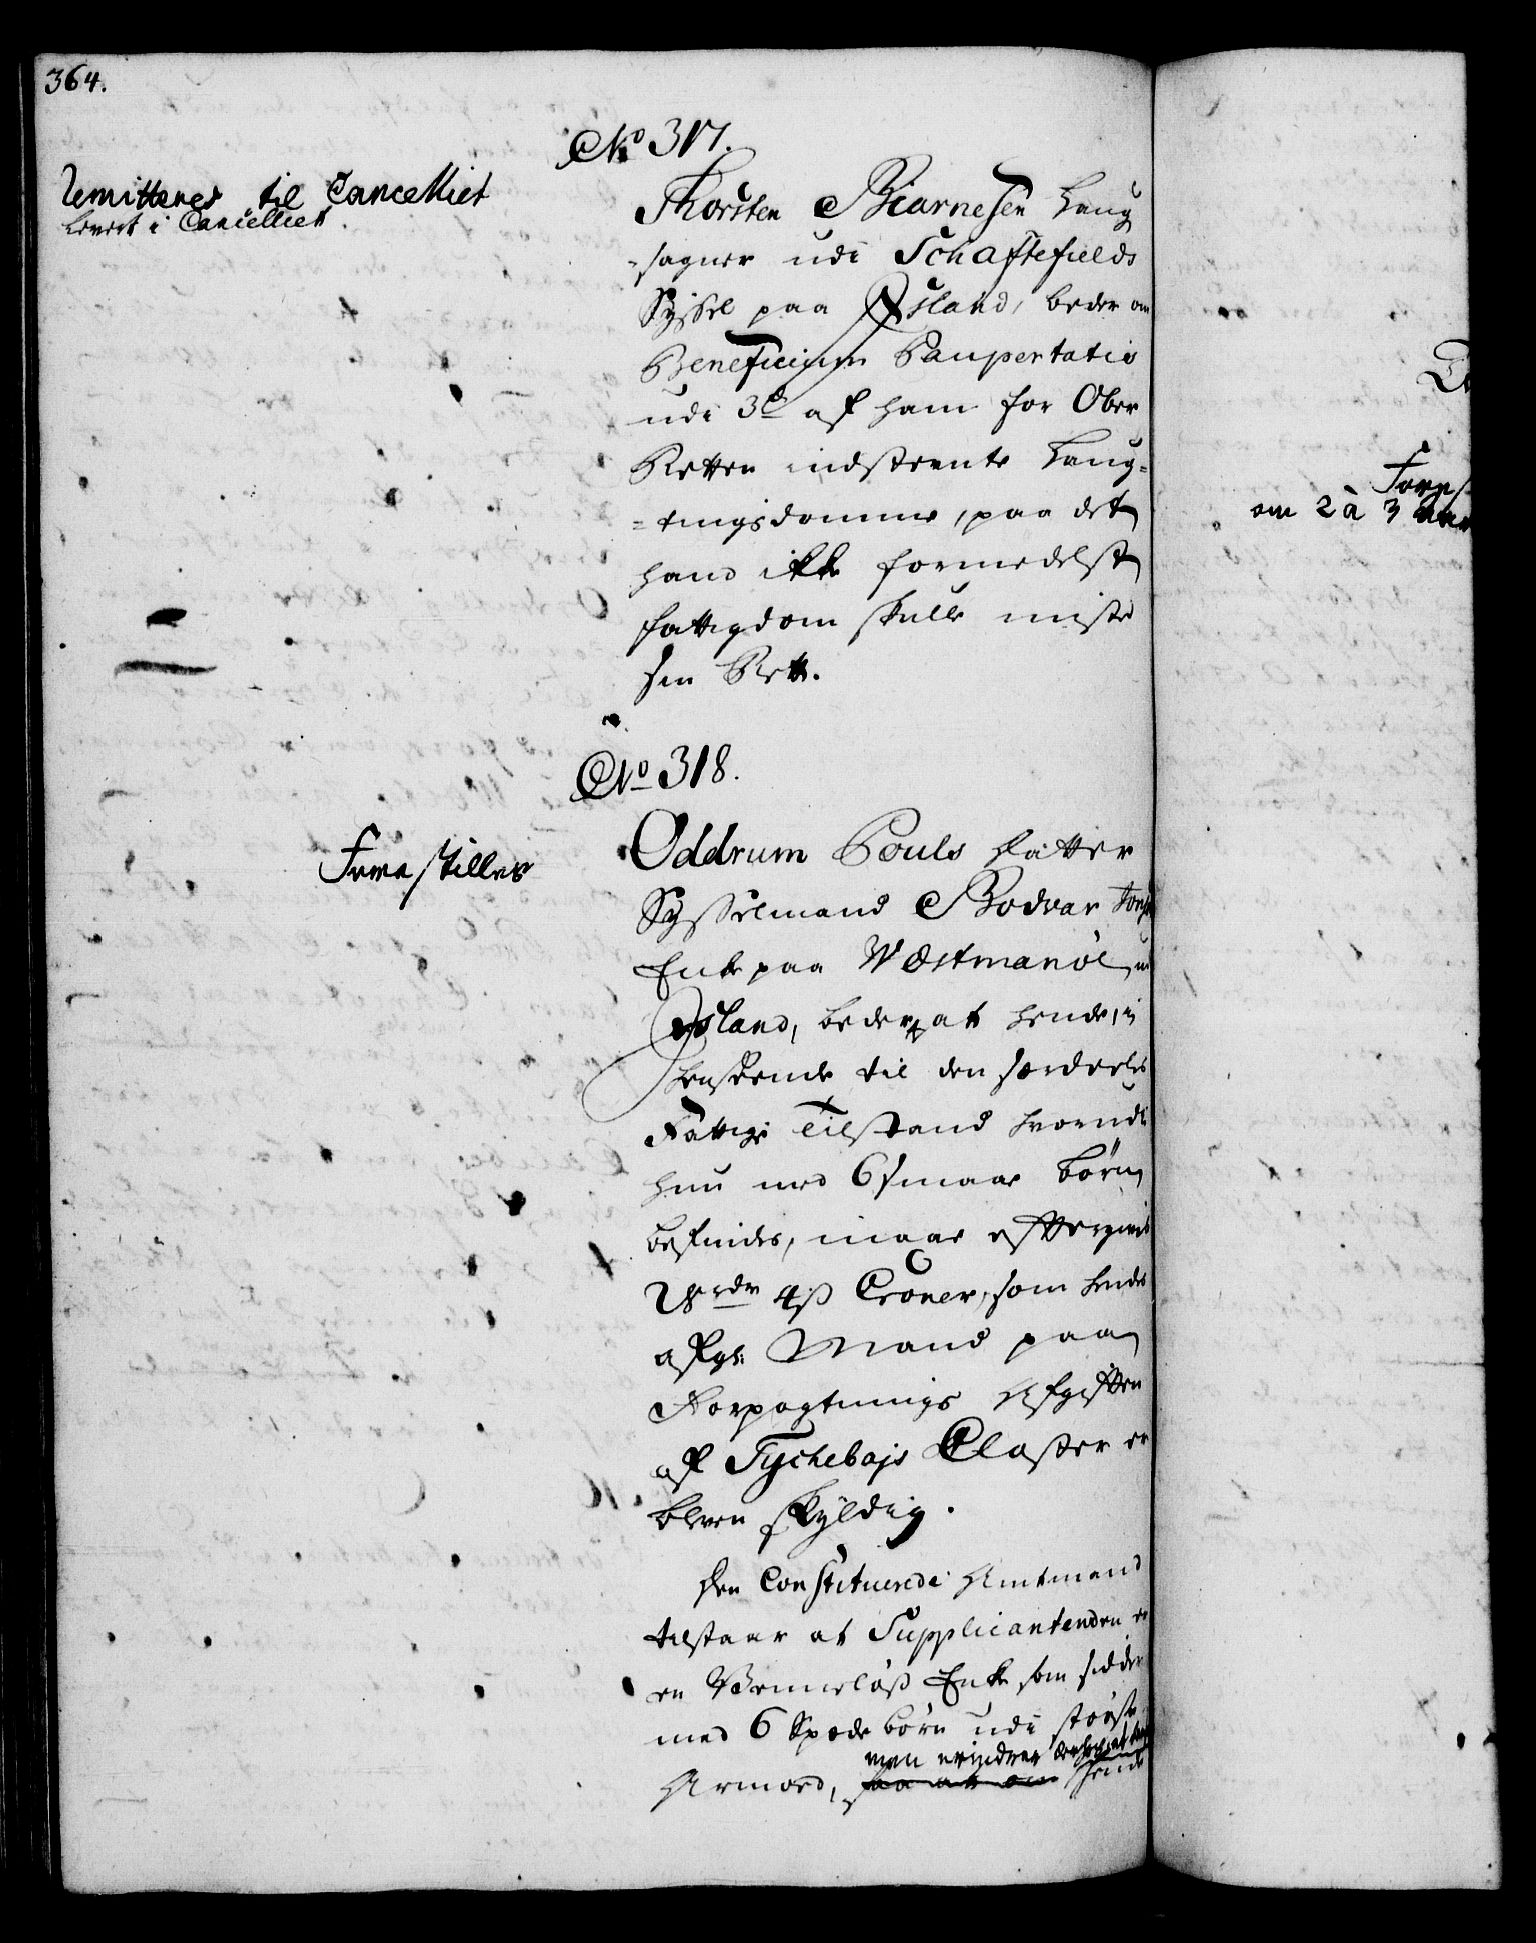 364.
No 317.
Remitteres til Cancelliet
Levert i Cancelliet.
Thorsten Biarnesen Laug
-sagner udi Schaftefields
Syssel paa Island, beder om
Beneficium Paupertatis
udi 3de af ham for Ober
Retten indstevnte Laug=
=tingsdomme, paa det
hand ikke formedelst
fattigdom skulle miste
sin Rett.
No 318.
Forestilles
Oddrum Pouls Datter
Sysselmand Bodvar Jons
Enke paa Westmanöe
Island, beder at hende, i
henseende til den særdeeles
Fattige Tilstand hvorudi
hun med 6 smaae börn
befindes, maae efftergives
28 rdr 4 ß Croner, som hendes
afgl: Mand paa
Forpagtnings Afgifften
af Tychebajs Closter er
bleven skyldig.
Den Constituerede Amtmand
tilstaar at Supplicantenden er
en Venneløs Enke som sidder
med 6 Spæde börn udi störste
men erindrer derhos at
Armoed, saa at om hende
Fores
om 2 à 3